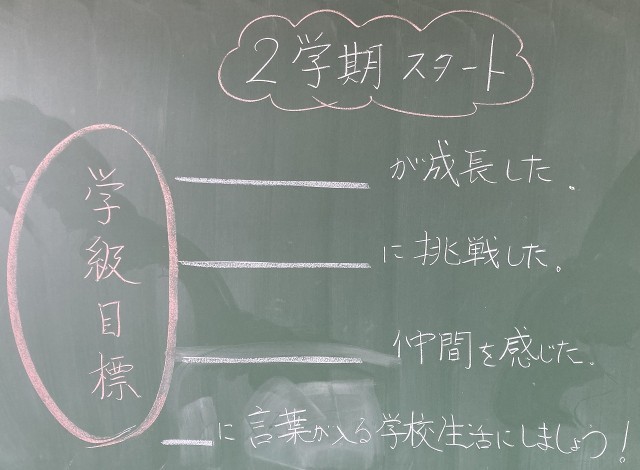 2学期 スタート
学級目標
が成長した。
に挑戦した。
仲間を感じた。
に言葉が入る学校生活にしましょう!